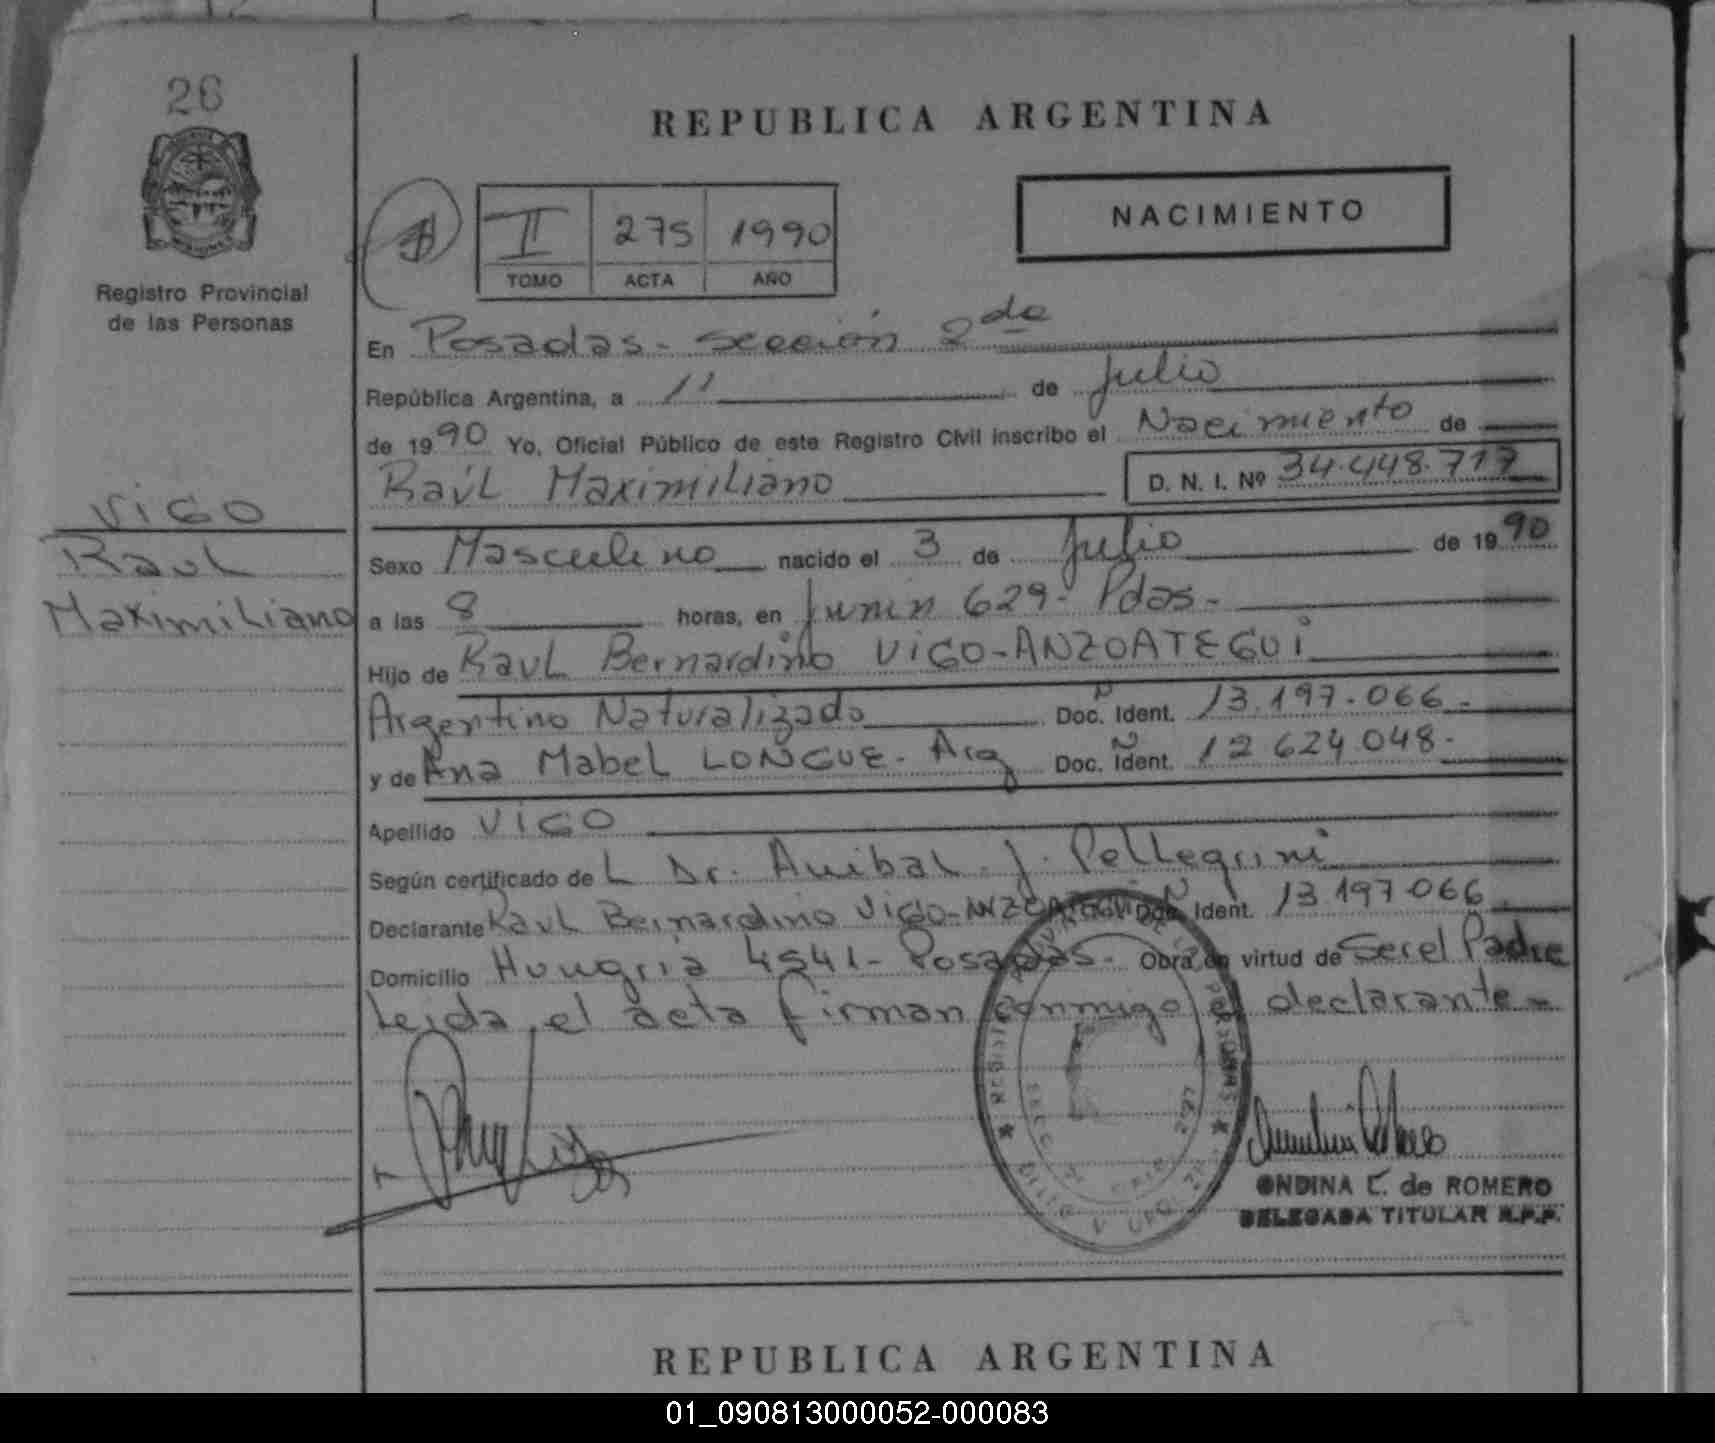 26
REPUBLICA ARGENTINA
II 275 1990
TOMO ACTA AÑO
NACIMIENTO
Registro Provincial
de las Personas
En Posadas - sección 2da
República Argentina, a 11 de Julio
de 1990 Yo, Oficial Público de este Registro Civil inscribo el Nacimiento de
Raúl Maximiliano D. N. I. Nº 34.448.717
VIGO
Raul
Maximiliano
Sexo Masculino nacido el 3 de Julio de 1990
a las 8 horas, en Junin 629 - Pdas -
Hijo de Raul Bernardino VIGO-ANZOATEGUI
Argentino Naturalizado Doc. Ident. N 13.197.066 -
y de Ana Mabel LONGUE - Arg Doc. Ident. N 12 624 048 -
Apellido VIGO
Según certificado de L Dr. Anibal J. Pellegrini
Declarante Raul Bernardino VIGO-ANZOATEGUI Doc. Ident. N 13 197 066
Domicilio Hungria 4541 - Posadas - Obra en virtud de Ser el Padre
Leida el acta firman conmigo el declarante -
ONDINA E. de ROMERO
DELEGADA TITULAR R.P.P.
REPUBLICA ARGENTINA
01_090813000052-000083